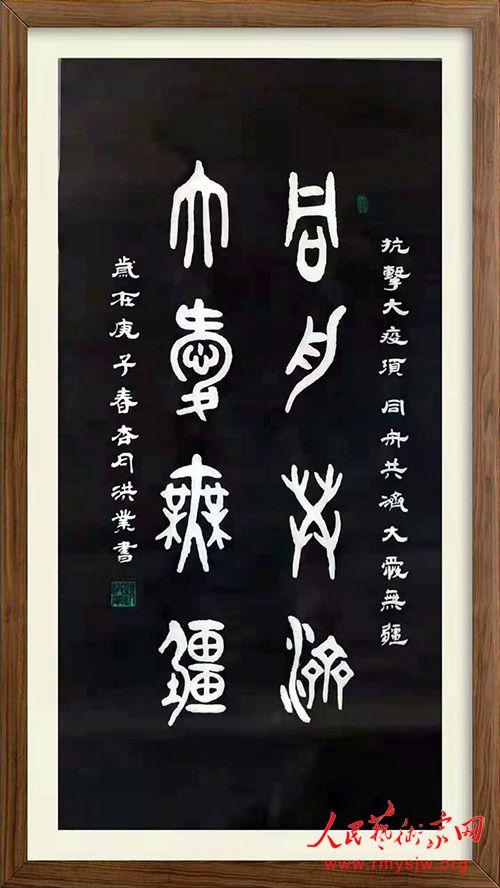 抗擊大疫須同舟共濟大愛無疆
同舟共濟
大愛無疆
歲在庚子春杏月洪業書
人民藝術家网
www.rmysjw.org